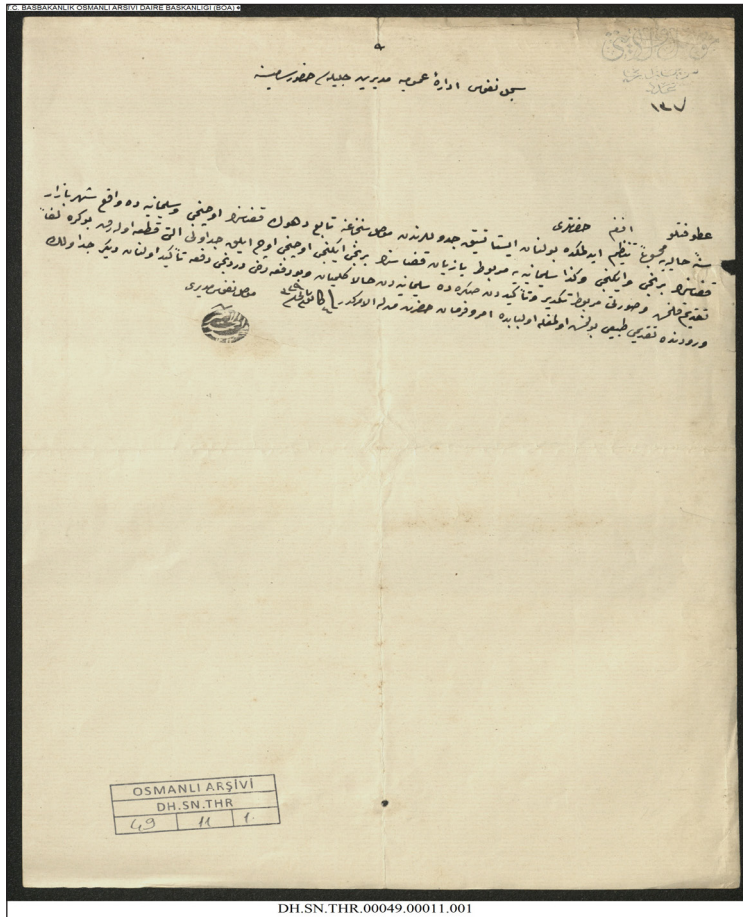 T.C. BAŞBAKANLIK OSMANLI ARŞİVİ DAİRE BAŞKANLIĞI (BOA)
١٣٧
سجل نفوس ادارهٔ عمومیه مدیریت جلیله‌سی حضور سامیسنه
عطوفتلو افندم حضرتلری
سنهٔ حالیه تنظیم ایدلمکده بولنان ایستاتستیق جدوللرندن موصل سنجاغنه تابع دهوك قضاسنك اوچنجی وسلیمانیه ده واقع شهربازار
قضاسنك برنجی وایکنجی وکذا سلیمانیه یه مربوط بازیان قضاسنك برنجی ایکنجی اوچنجی اوچ ایلق جداولی التی قطعه اوله‌رق بوکره لفاً
تقدیم قلنمش وصورتی مربوط تکدیر وتأکیددن صکره ده سلیمانیه دن حالا کلمیان وبودفعه دخی دردنجی دفعه تأکید اولنان دیکر جداولك
ورودنده تقدیمی طبیعی بولنمش اولمغله اولبابده امر وفرمان حضرت من له الامرکدر
موصل نفوس مدیری
OSMANLI ARŞİVİ
DH.SN.THR
49 11 1
DH.SN.THR.00049.00011.001